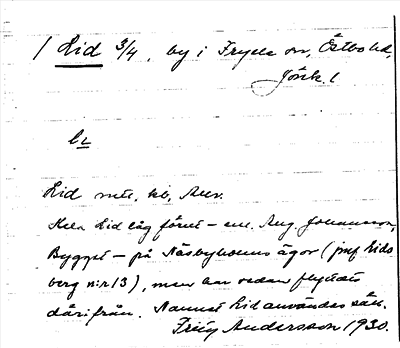 / Lid 3/4, by i Fryele sn, Östbo hd,
Jönk. l
Lid mtl, kb, Aler.
Hela Lid låg förut – enl. Aug. Johansson,
Bygget – på Näsbyholms ägor (jmf Lids
berg n:r 13), men har sedan flyttats
därifrån. Namnet Lid användes säll.
Fritz Andersson 1930.